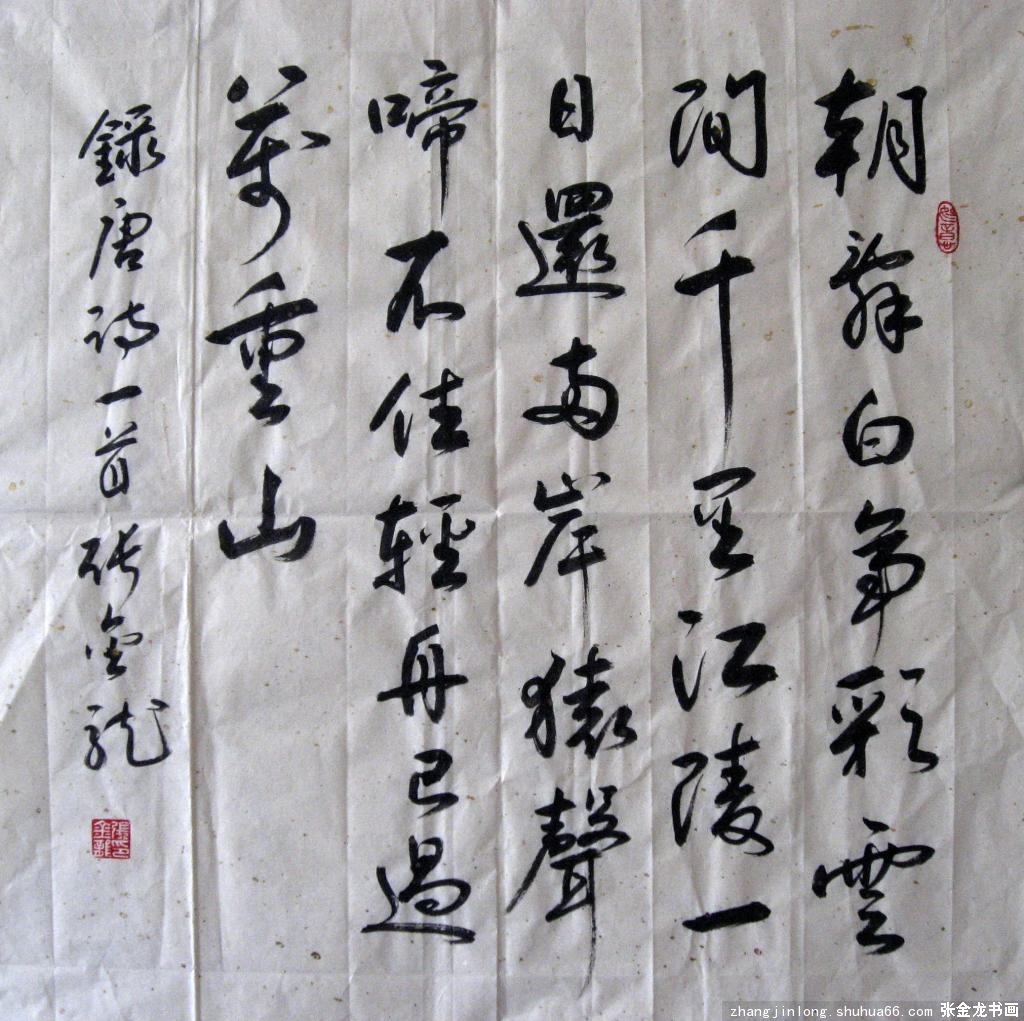 朝辭白帝彩雲
間千里江陵一
日還兩岸猿聲
啼不住輕舟已過
萬重山
錄唐詩一首 張金龍
張印金龍
zhangjinlong.shuhua66.com 张金龙书画